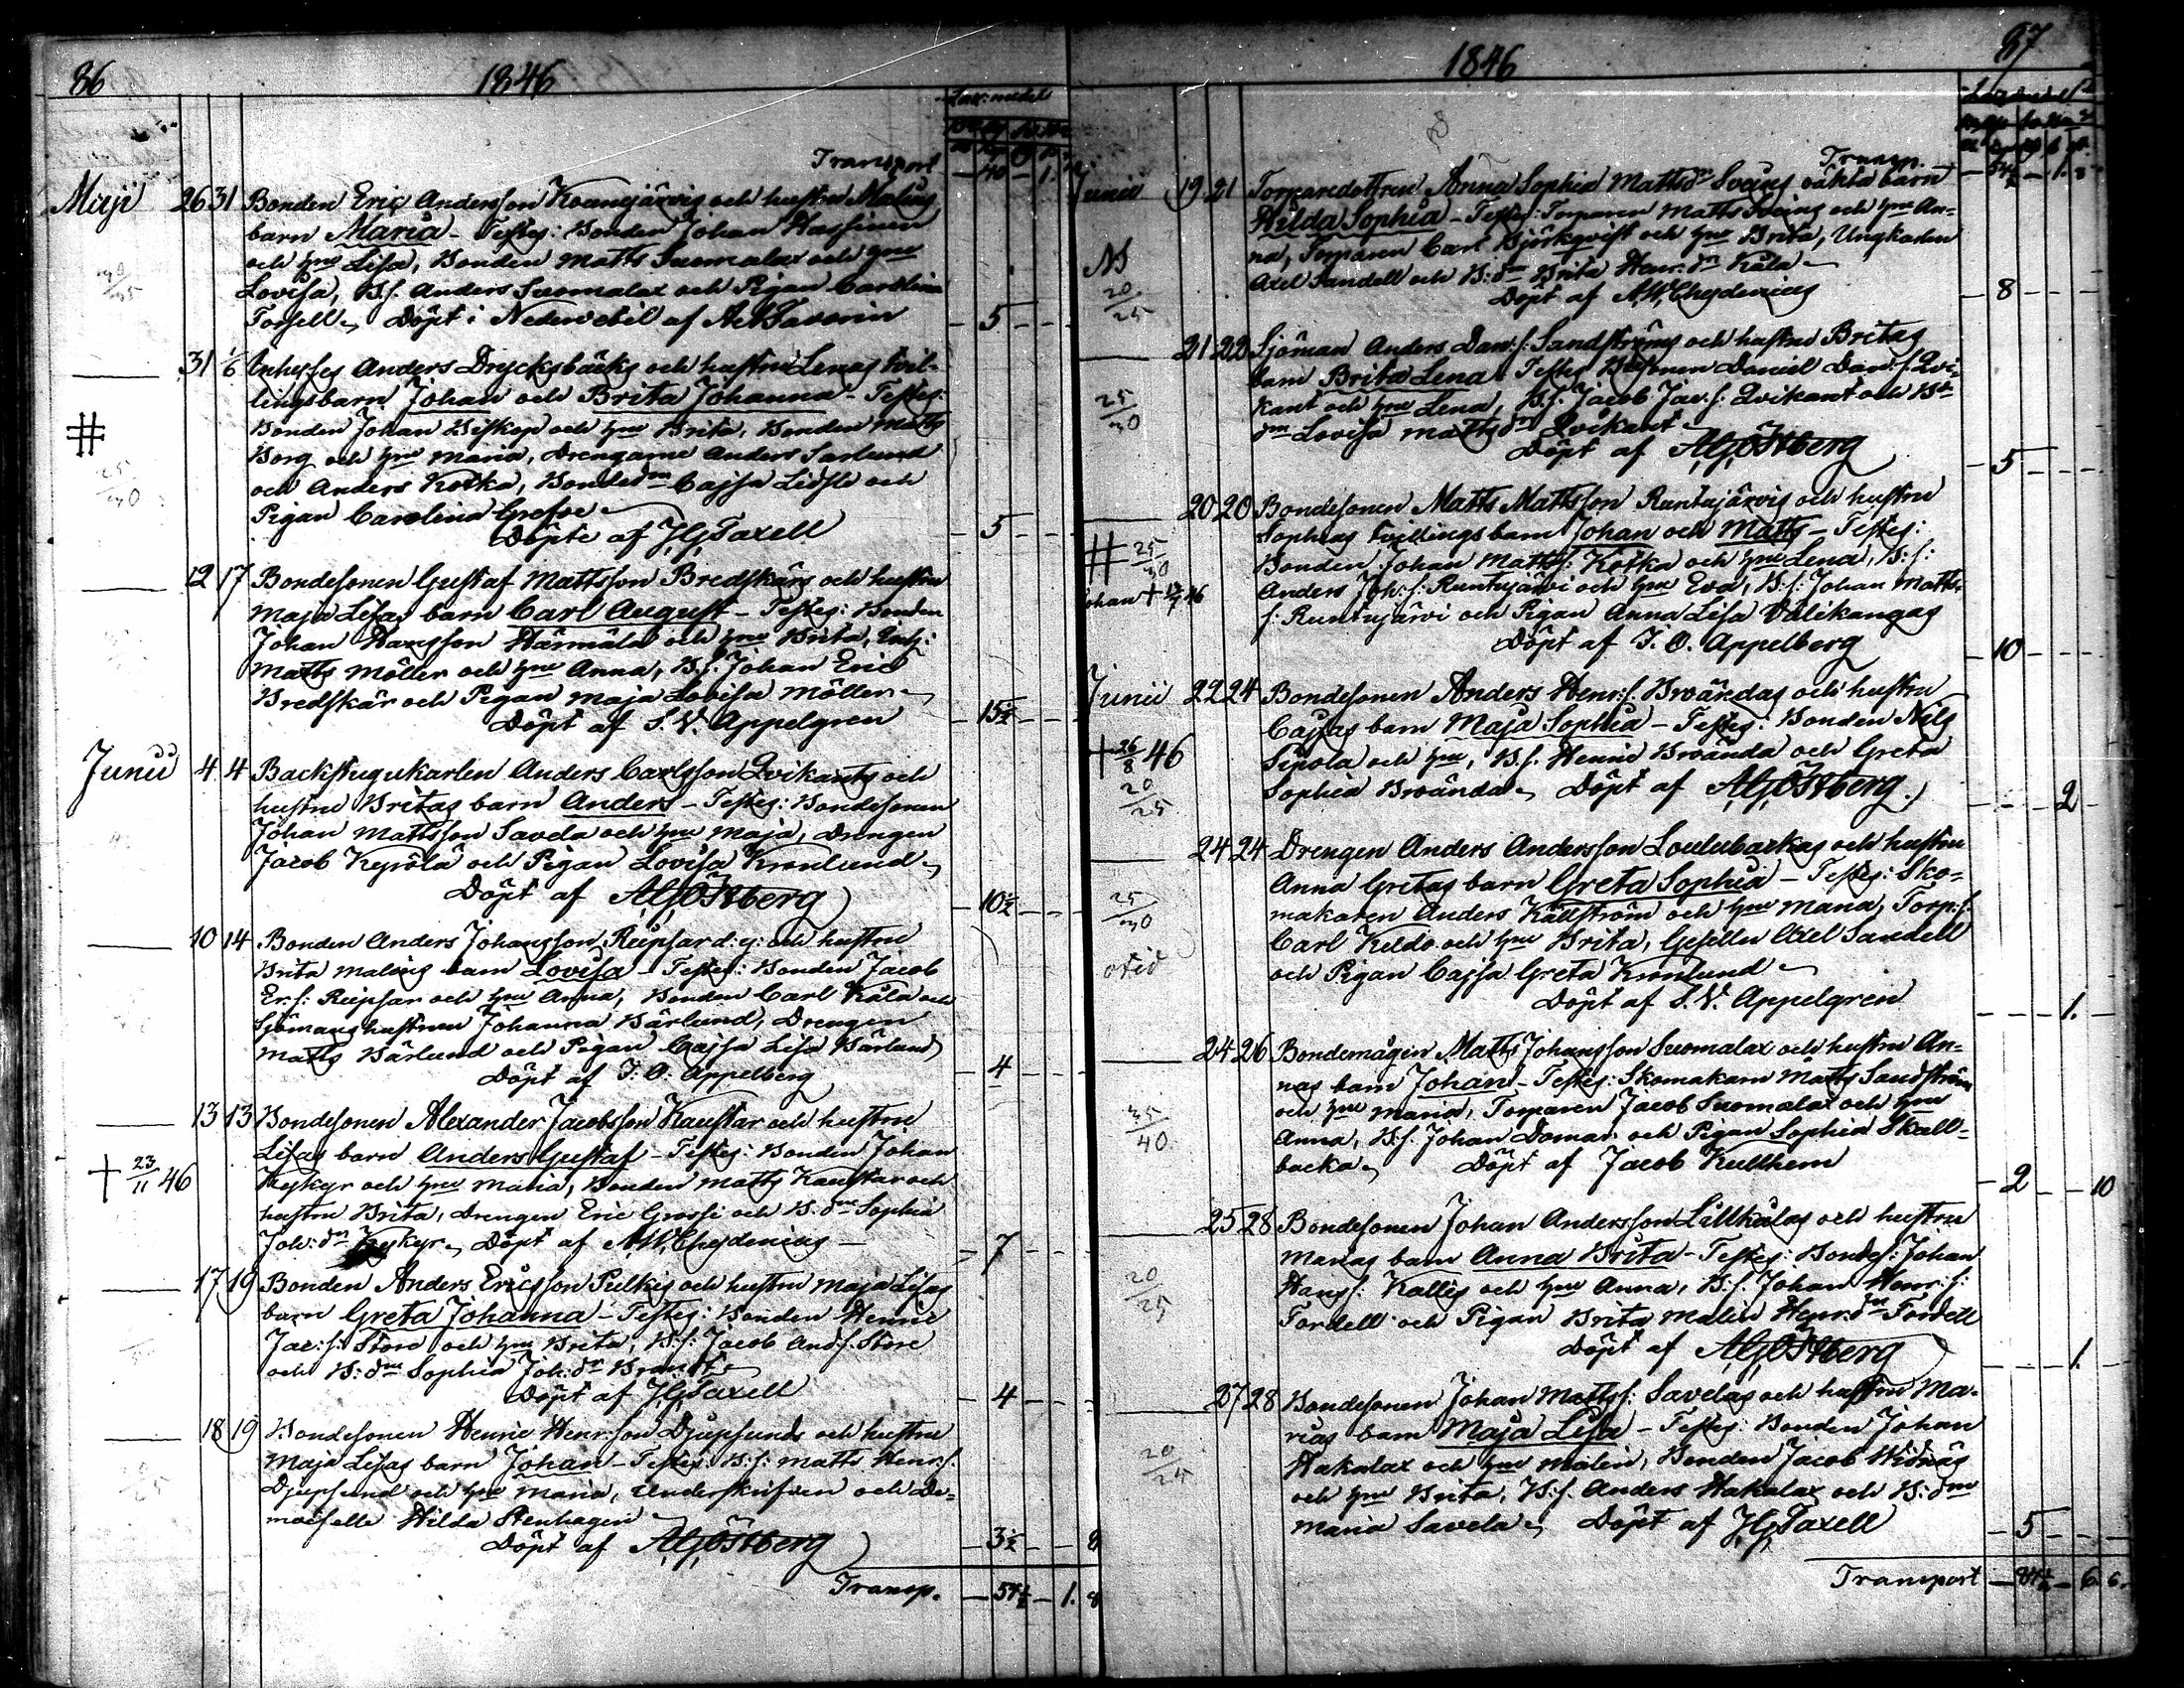 86
1846
Transport
Maji 26 31 Bonden Eric Andersson och hustru Malins
barn Maria - Testes: Bonden Johan Hassinen
och hru Lisa, Bonden Matts Suomalax och hru
Lovisa, B.s. Anders Suomalax och Pigan Carolina
Forsell. Döpt i Nedervetil af
5
31 1/6 Inhyses Anders Drycksbäcks och hustru Lenas tvil-
lingsbarn Johan och Brita Johanna - Testes:
Bonden Johan Biskop och hru Brita, Bonden Matts
Borg och hru Maria, Drengarne Anders Sarlund
och Anders Kotka, Bondedn Cajsa Lidsle och
Pigan Carolina Grefve
Döpte af J.G. Taxell
5
12 17 Bondesonen Gustaf Mattsson Bredskärs och hustru
Maja Lisas barn Carl August - Testes: Bonden
Johan Hansson Härmälä och hru Brita, Inh:
Matts Möller och hru Anna, B.s. Johan Erics
Bredskär och Pigan Maja Lovisa Möller
Döpt af S.V. Appelgren
15½
Junii 4 4 Backstugukarlen Anders Carlsson Qvikants och
hustru Britas barn Anders - Testes: Bondesonen
Johan Mattsson Savela och hru Maja, Drengen
Jacob Keyrölä och Pigan Lovisa Kronlund
Döpt af A.G. Östberg
10½
10 14 Bonden Anders Johansson Riipsar d:y: och hustru
Brita Malins barn Lovisa - Testes: Bonden Jacob
Er.s: Riipsar och hru Anna, Bonden Carl Kåla och
Sjömans hustrun Johanna Härlund, Drengen
Matts Härlund och Pigan Cajsa Lisa Härlund
Döpt af J.O. Appelberg
4
13 13 Bondesonen Alexander Jacobsson Kaustar och hustru
Lisas barn Anders Gustaf - Testes: Bonden Johan
Kykyr och hru Maria, Bonden Matts Kaustar och
hustru Brita, Drengen Eric Grossi och B.dn Sophia
Joh:dn Kykyr. Döpt af A.W. Chydenius
7
† 23/11 46
17 19 Bonden Anders Ericsson Pulkis och hustru Maja Lisas
barn Greta Johanna - Testes: Bonden Henric
Jac:s: Store och hru Brita, B:s: Jacob And:s. Store
och B:dn Sophia Joh:dn Brandt
Döpt af J.G. Taxell
4
18 19 Bondesonen Henric Henr:son Djupsunds och hustru
Maja Lisas barn Johan - Testes: B:s: Matts Henr:s.
Djupsund och hru Maria, Underskrifven och De-
moiselle Hilda Stenhagen
Döpt af A.G. Östberg
3½ 8
Transp. 54½ 1. 8
1846
87
Transp.
Junii 19 21 Torparedottren Anna Sophia Mattsdr Sveins oäkta barn
Hilda Sophia - Testes: Torparen Matts Sveins och hru An-
na, Torparen Carl Björkqvist och hru Brita, Ungkarlen
Axel Sandell och B:dn Brita Henr:dn Kåla
Döpt af A.W. Chydenius
8
20/25
21 22 Sjöman Anders Dan:s: Sandströms och hustru Britas
barn Brita Lena. Testes Bdsonen Daniel Dan:s. Qvi-
kant och hru Lena, B.s. Jacob Jac:s: Qvikant och Bde
dn Lovisa Mattsdn Qvikant
Döpt af A.G. Östberg
5
25/30
20 20 Bondesonen Matts Mattsson Runtujärvis och hustru
Sophias tvillingsbarn Johan och Matts - Testes:
Bonden Johan Matts: Kotka och hru Lena, B:s:
Anders Joh:s: Runtujärvi och hru Eva, B.s: Johan Matts-
s: Runtujärvi och Pigan Anna Lisa Välikangas
Döpt af J.O. Appelberg
10
25/30
Junii 22 24 Bondesonen Anders Henr:s. Brändas och hustru
Cajsas barn Maja Sophia - Testes: Bonden Nils
Sipola och hru, B.s. Henric Brända och Greta
Sophia Brända. Döpt af A.G. Östberg.
2
† 26/8 46
20/25
24 24 Drengen Anders Andersson Loulubackas och hustru
Anna Gretas barn Greta Sophia - Testes: Sko-
makaren Anders Källström och hru Maria, Torp:s.
Carl Keldo och hru Brita, Gesellen Axel Sandell
och Pigan Cajsa Greta Kronlund
Döpt af S.V. Appelgren
1.
25/30
24 26 Bondemågen Matts Johansson Suomalax och hustru An-
nas barn Johan - Testes: Skomakarn Matts Sandström
och hru Maria, Torparen Jacob Suomalax och hru
Anna, B:s. Johan Domar och Pigan Sophia Skall-
backa. Döpt af Jacob Kullhem
2 10
35/40
25 28 Bondesonen Johan Andersson Lillkålas och hustru
Marias barn Anna Brita - Testes: Bondes: Johan
Hans s: Kallis och hru Anna, B.s. Johan Henr:s:
Fordell och Pigan Brita Malin Henr:dn Fordell
Döpt af A.G. Östberg
1.
20/25
27 28 Bondesonen Johan Matts s: Savelas och hustru Ma-
rias barn Maja Lisa - Testes: Bonden Johan
Hakalax och hru Malin, Bonden Jacob Widnäs
och hru Brita, B:s. Anders Hakalax och B:dn
Maria Savela. Döpt af J.G. Taxell
5
Transport 84½ 6. 6.